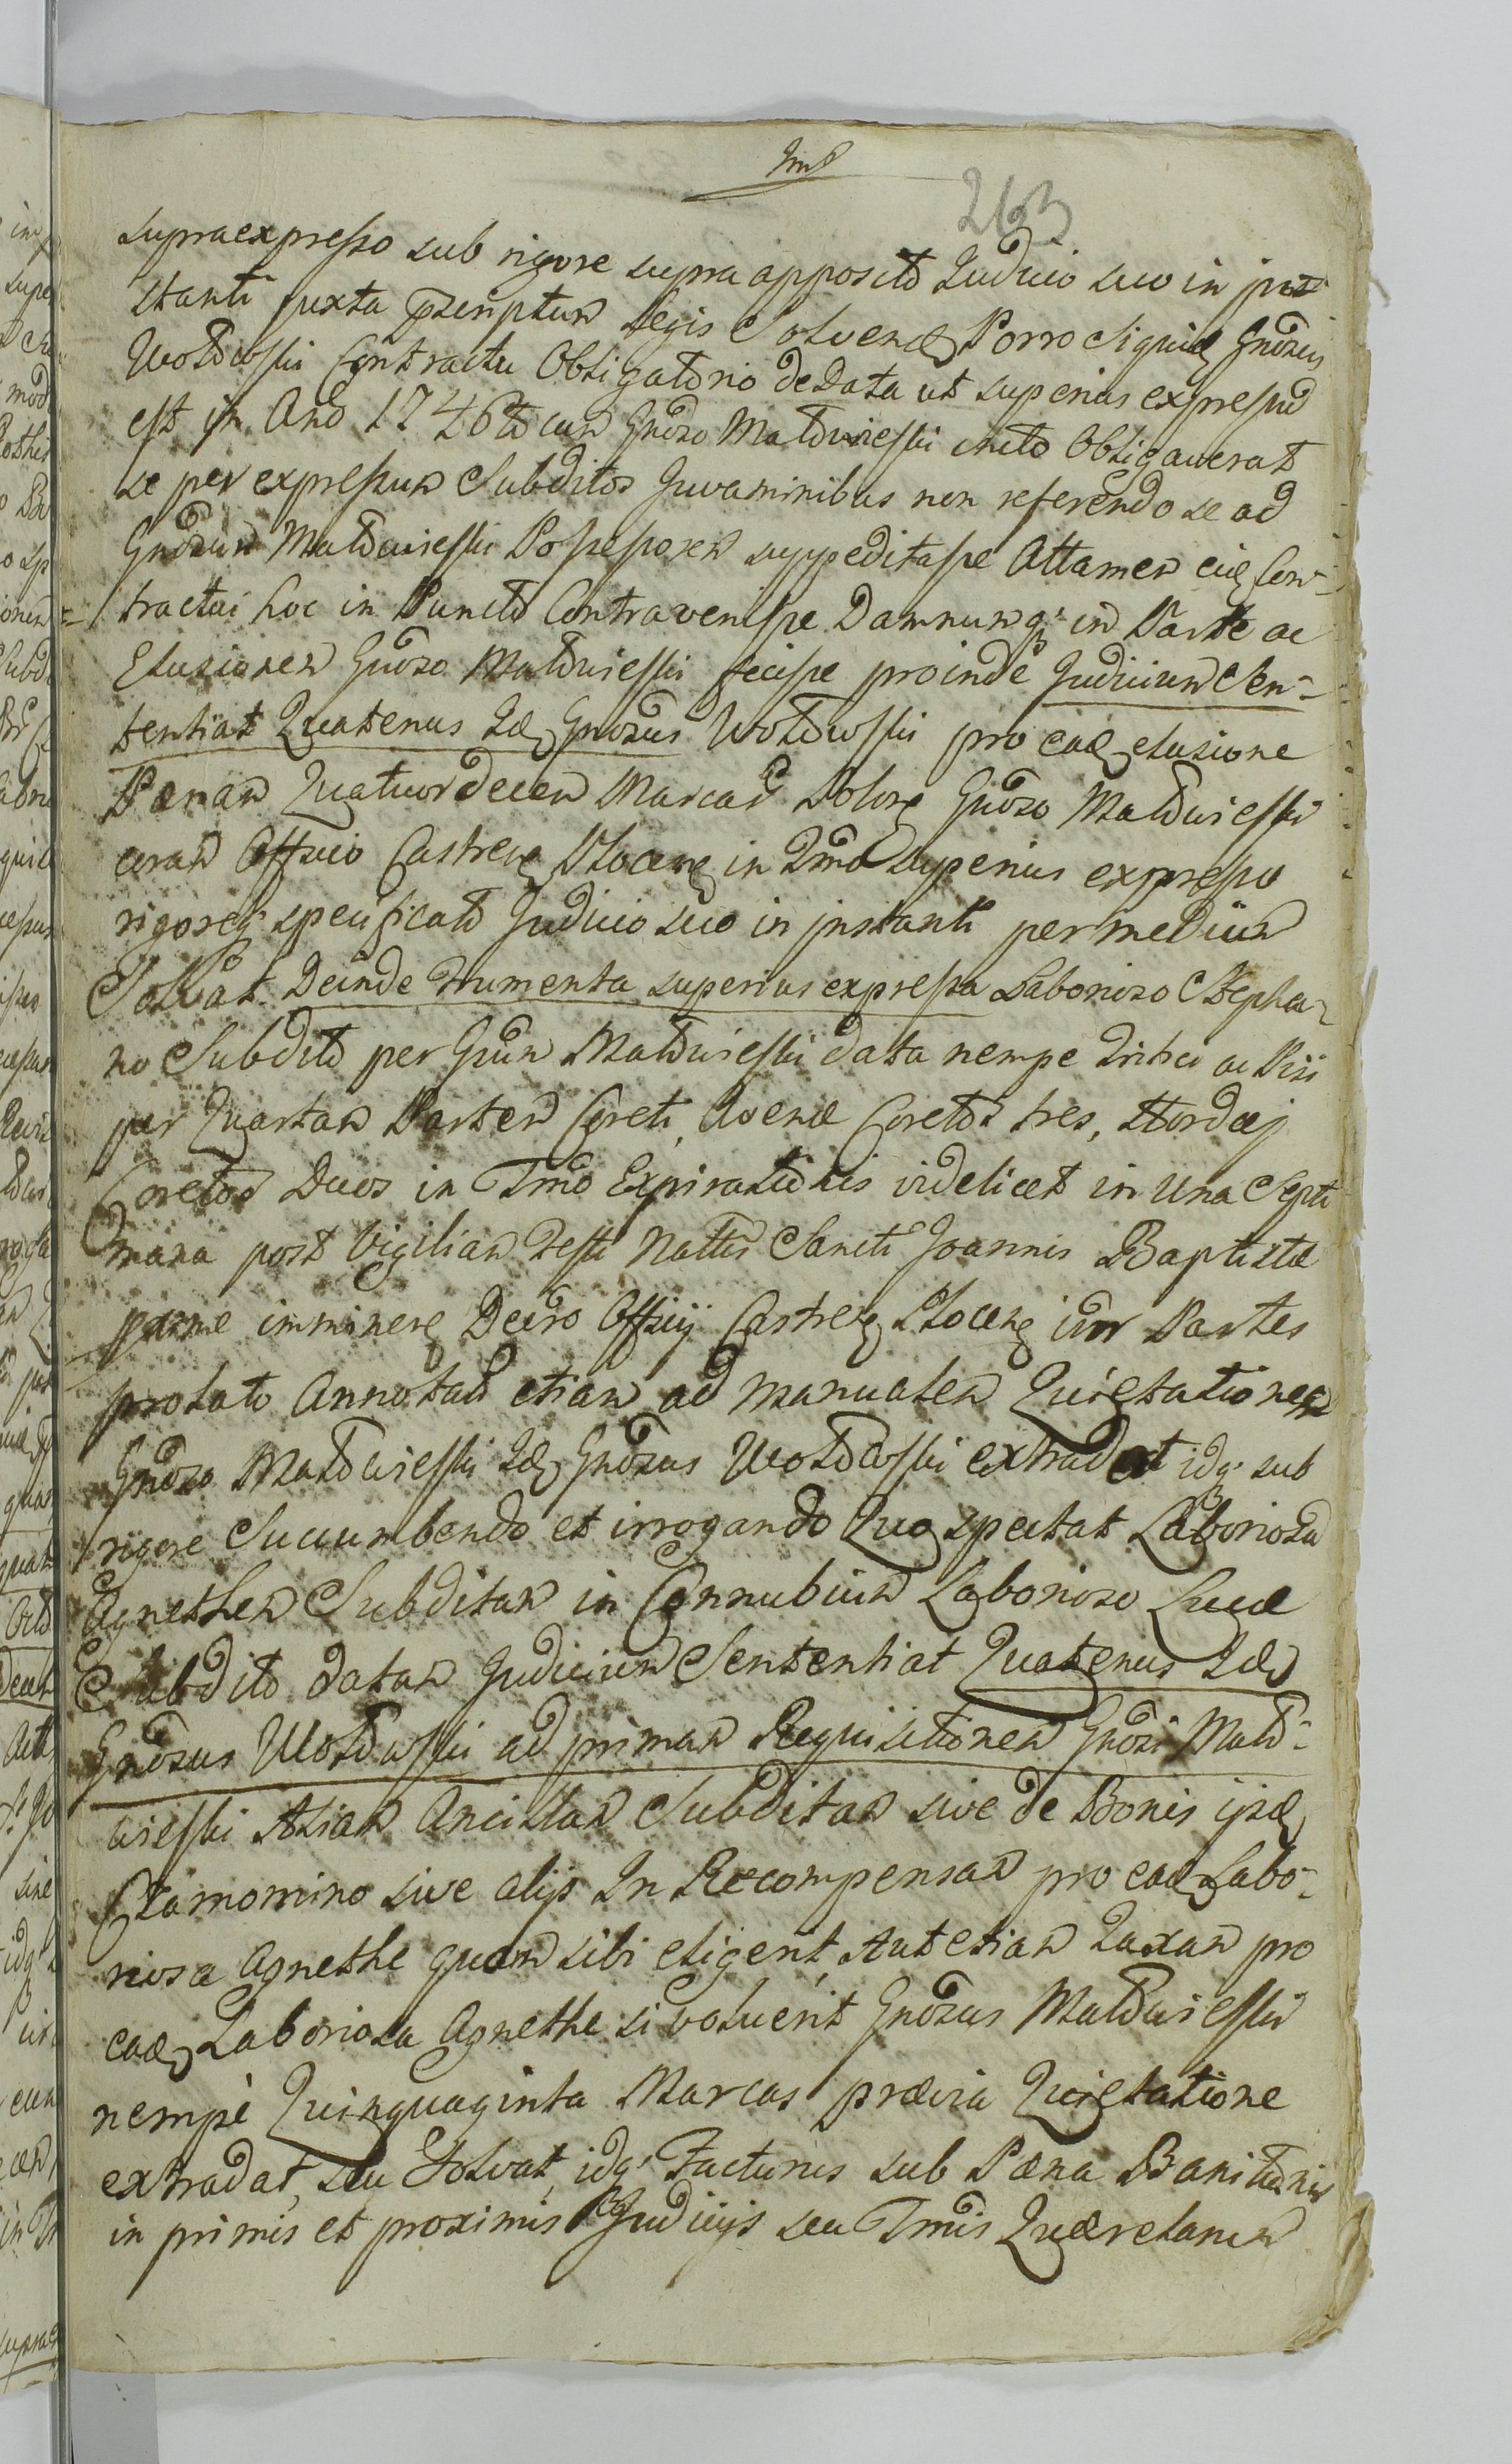 263
supraexpresso sub rigore supra apposito Judicio suo in jn
stanti juxta Pscriptum Legis Solvend Porro siquid Gnosus
Wołłowski Contractu Obligatorio de Data ut superius expressu
est in Ano 1746to cum Gnoso Małowieski inito Obligaverat
se per expressum Subditos Juvaminibus non referendo se ad
Gnosum Małowieski Possessorem suppeditasse Attamen eid Con-
tractui hoc in Puncto Contravenisse Damnumq in Parte ac
Elusionem Gnoso Małowieski fecisse proinde Judicium Sen-
tentiat Quatenus Id Gnosus Wołłowski pro ead elusione
Pœnam Quatuordecem Marcas Polon Gnoso Małowieski
coram Officio Castren Plocen in Tmo superius expresso
rigoreq specificato Judicio suo in jnstanti per medium
Solvat. Deinde Frumenta superius expressa Laborioso Stepha-
no Subdito per Gnum Małowieski data nempe Tritici ac Pisi
per Quartam Partem Coreti, Avenæ Coretos tres, Hordej
Coretos Duos in Tmo Expirationis videlicet in una Septi
mana post Vigiliam Festi Nattis Sancti Joannis Baptistæ
proxme imminen Decro Officij Castren Plocen inr Partes
prolato Annotati etiam ad manualem Quietationem
Gnoso Małowieski Id Gnosus Wołłowski extradat idq sub
rigore Succumbendo et irrogando Quo spectat Laboriosa
Agnethem Subditam in Connubium Laborioso Lucæ
Subdito datam Judicium Sententiat Quatenus Id
Gnosus Wołłowski ad primam Requisitionem Gnosi Mało-
wieski Aliam Ancillam Subditam sive de Bonis ipsd
Stamomino sive alijs In Recompensam pro ead Labo-
riosa Agnethe quam sibi eligerit, Aut etiam Taxam pro
ead Laboriosa Agnethe si voluerit Gnosus Małowieski
nempè Quinquaginta Marcas prævia Quietatione
extradat, seu Solvat, idq Facturus sub Pœna Banitionis
in primis et proximis Judicijs seu Tmis Quærelarum